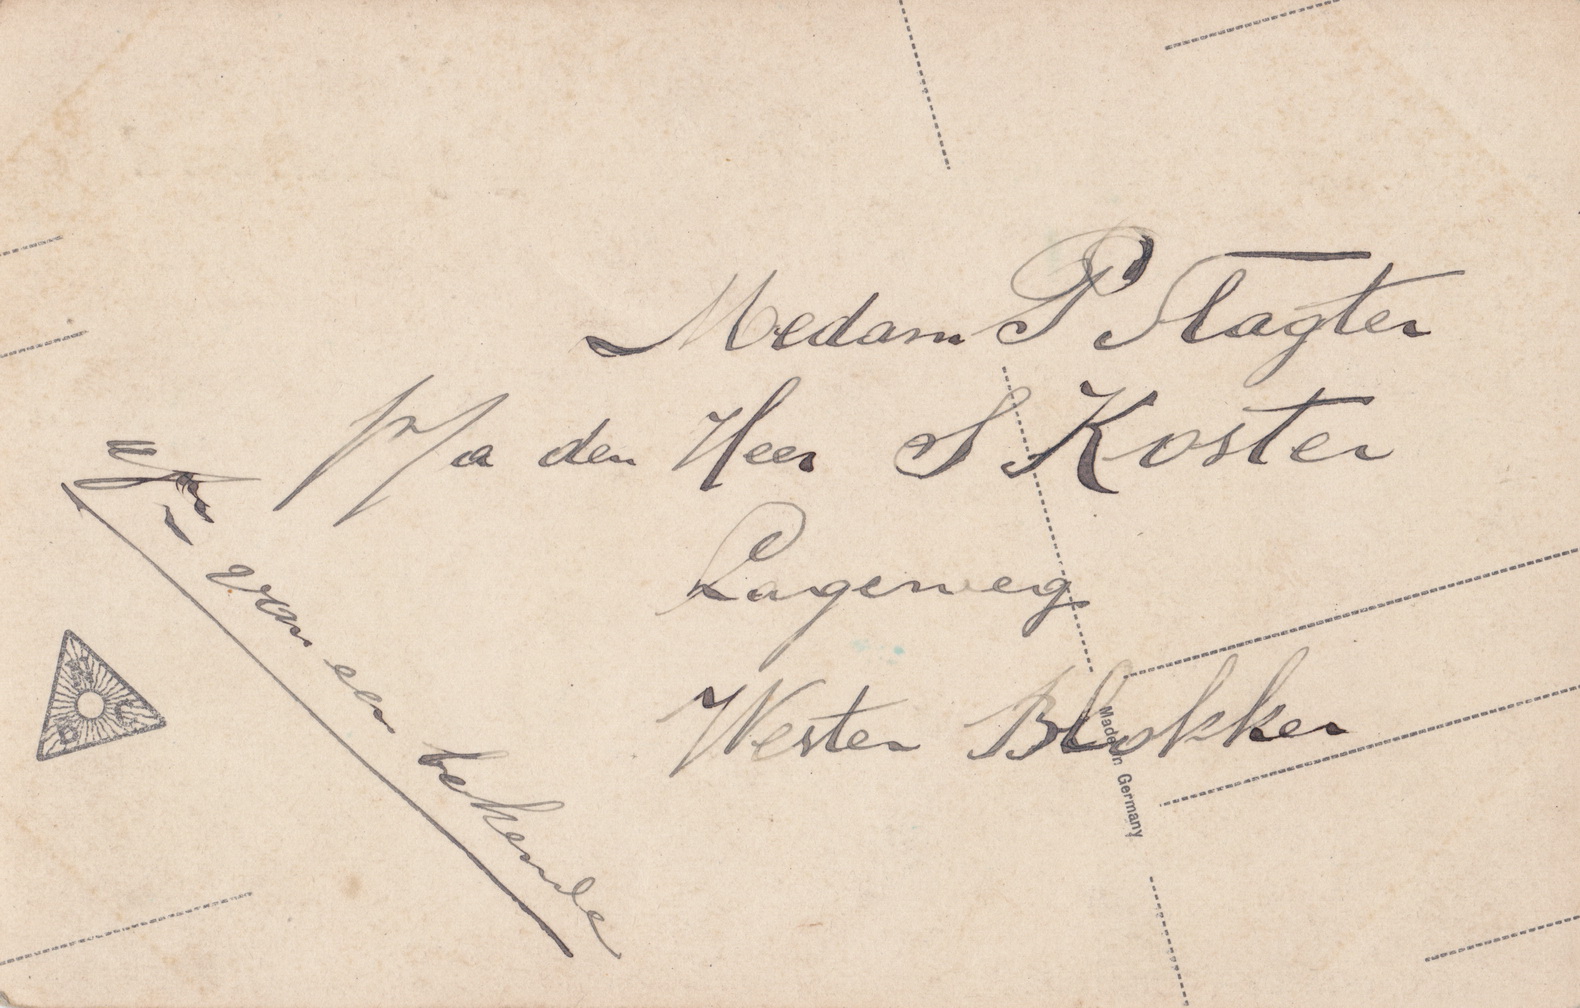 Medam P Slagter
p/a den Heer S Koster
Lageweg
Wester Blokker
van een bekende
Made in Germany
N
C